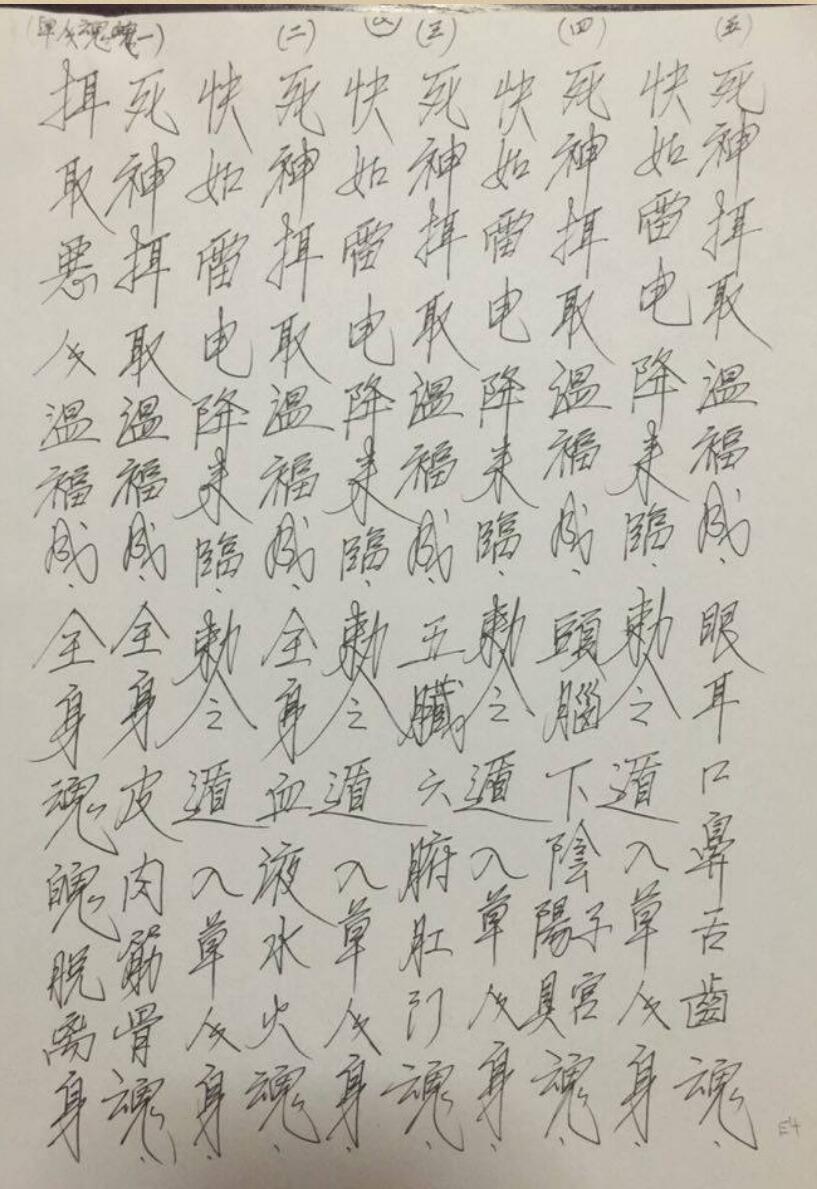 (单人魂魄一)
挕取悪人温福威、全身魂魄脱离身、
死神挕取温福威、全身皮肉筋骨魂、
快如雷电降来臨、勅令遁入草人身、
(二)
死神挕取温福威、全身血液水火魂、
快如雷电降来臨、勅令遁入草人身、
(三)
死神挕取温福威、五臓六腑肛门魂、
快如雷电降来臨、勅令遁入草人身、
(四)
死神挕取温福威、頭腦下陰陽具子宮魂、
快如雷电降来臨、勅令遁入草人身、
(五)
死神挕取温福威、眼耳口鼻舌齒魂、
E4